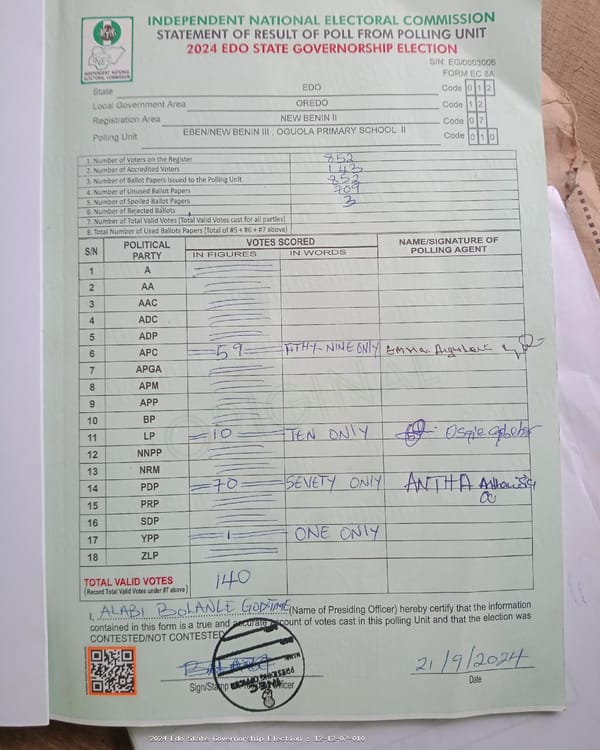 INDEPENDENT NATIONAL ELECTORAL COMMISSION
STATEMENT OF RESULT OF POLL FROM POLLING UNIT
2024 EDO STATE GOVERNORSHIP ELECTION
INDEPENDENT NATIONAL ELECTORAL COMMISSION
S/N: EG/0003006
FORM EC 8A
State EDO Code 0 1 2
Local Government Area OREDO Code 1 2
Registration Area NEW BENIN II Code 0 7
Polling Unit EBEN/NEW BENIN III , OGUOLA PRIMARY SCHOOL II Code 0 1 0
1. Number of Voters on the Register 852
2. Number of Accredited Voters 143
3. Number of Ballot Papers issued to the Polling Unit 852
4. Number of Unused Ballot Papers 709
5. Number of Spoiled Ballot Papers 3
6. Number of Rejected Ballots
7. Number of Total Valid Votes (Total Valid Votes cast for all parties)
8. Total Number of Used Ballots Papers (Total of #5 + #6 + #7 above)
S/N POLITICAL PARTY VOTES SCORED NAME/SIGNATURE OF POLLING AGENT
IN FIGURES IN WORDS
1 A
2 AA
3 AAC
4 ADC
5 ADP
6 APC 59 FITHY-NINE ONLY Emma
7 APGA
8 APM
9 APP
10 BP
11 LP 10 TEN ONLY
12 NNPP
13 NRM
14 PDP 70 SEVETY ONLY ANTHA
15 PRP
16 SDP
17 YPP 1 ONE ONLY
18 ZLP
TOTAL VALID VOTES 140
(Record Total Valid Votes under #7 above)
I, ALABI BOLANLE GODSTIME (Name of Presiding Officer) hereby certify that the information
contained in this form is a true and accurate account of votes cast in this polling Unit and that the election was
CONTESTED/NOT CONTESTED
21/9/2024
Sign/Stamp Officer Date
PRESIDING OFFICER
INEC
2024 Edo State Governorship Election : 12-12-07-010